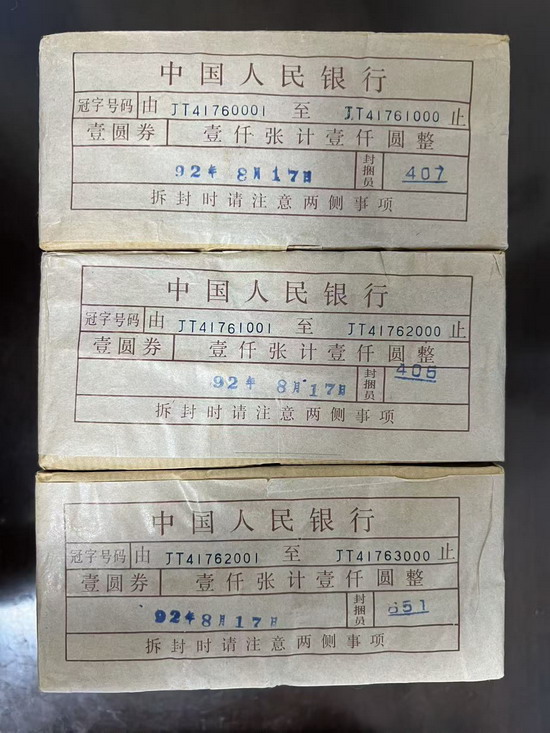 中国人民银行
冠字号码 由 JT41760001 至 JT41761000 止
壹圆券 壹仟张计壹仟圆整
92年8月17日 封捆员 407
拆封时请注意两侧事项
中国人民银行
冠字号码 由 JT41761001 至 JT41762000 止
壹圆券 壹仟张计壹仟圆整
92年8月17日 封捆员 405
拆封时请注意两侧事项
中国人民银行
冠字号码 由 JT41762001 至 JT41763000 止
壹圆券 壹仟张计壹仟圆整
92年8月17日 封捆员
拆封时请注意两侧事项